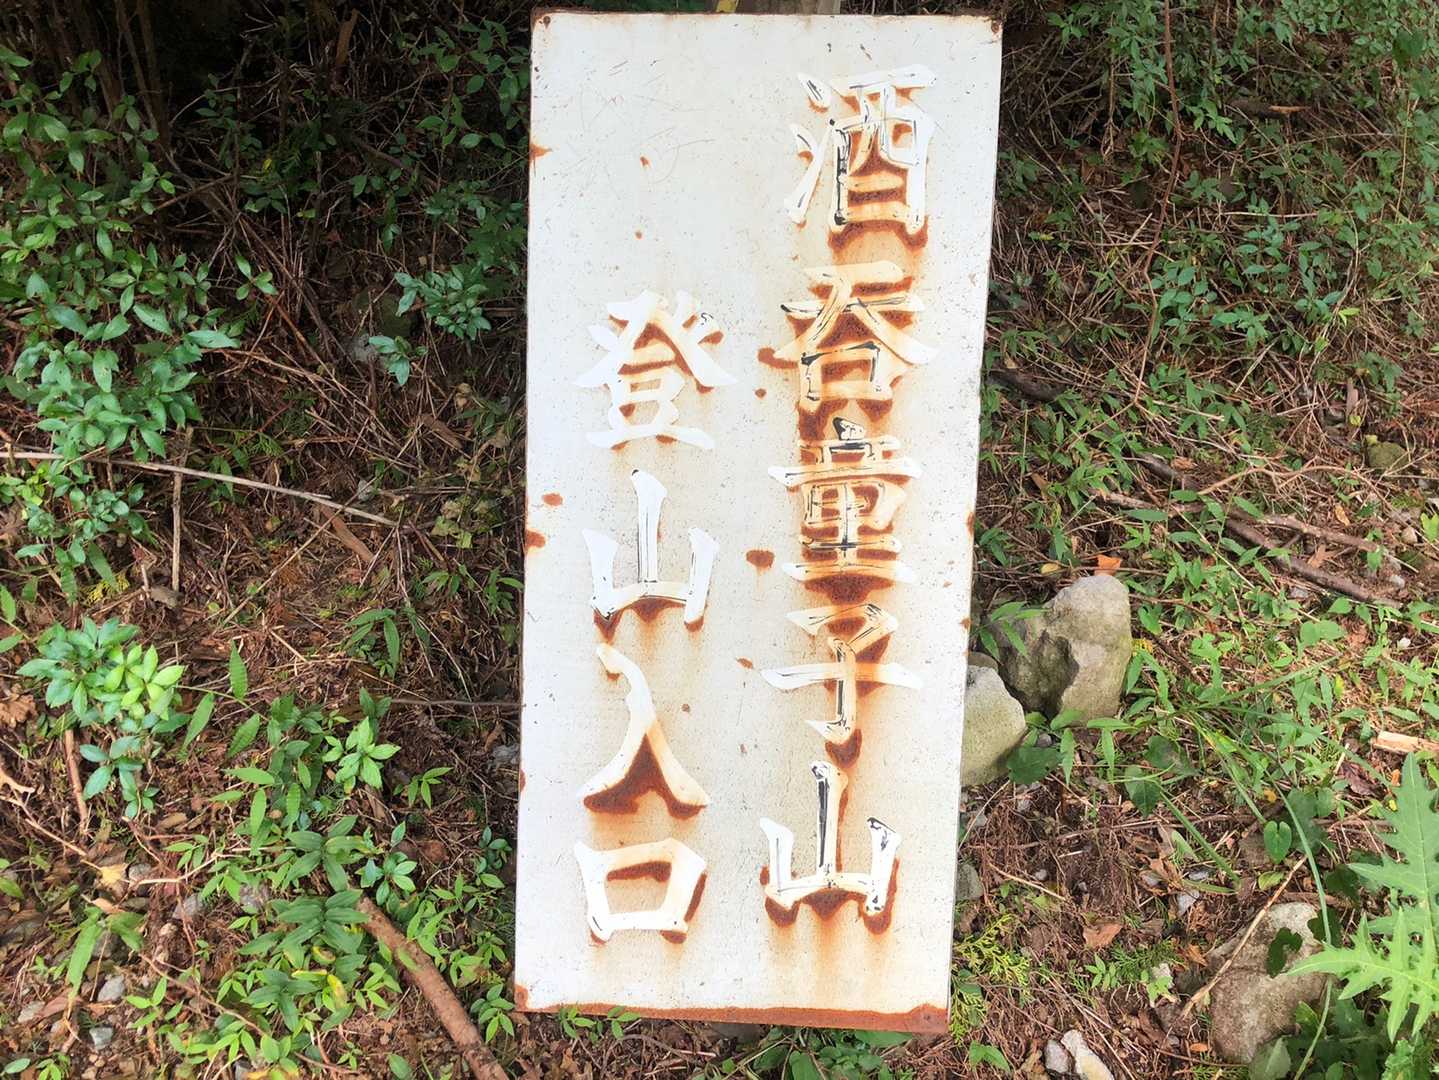 酒呑童子山
登山入口